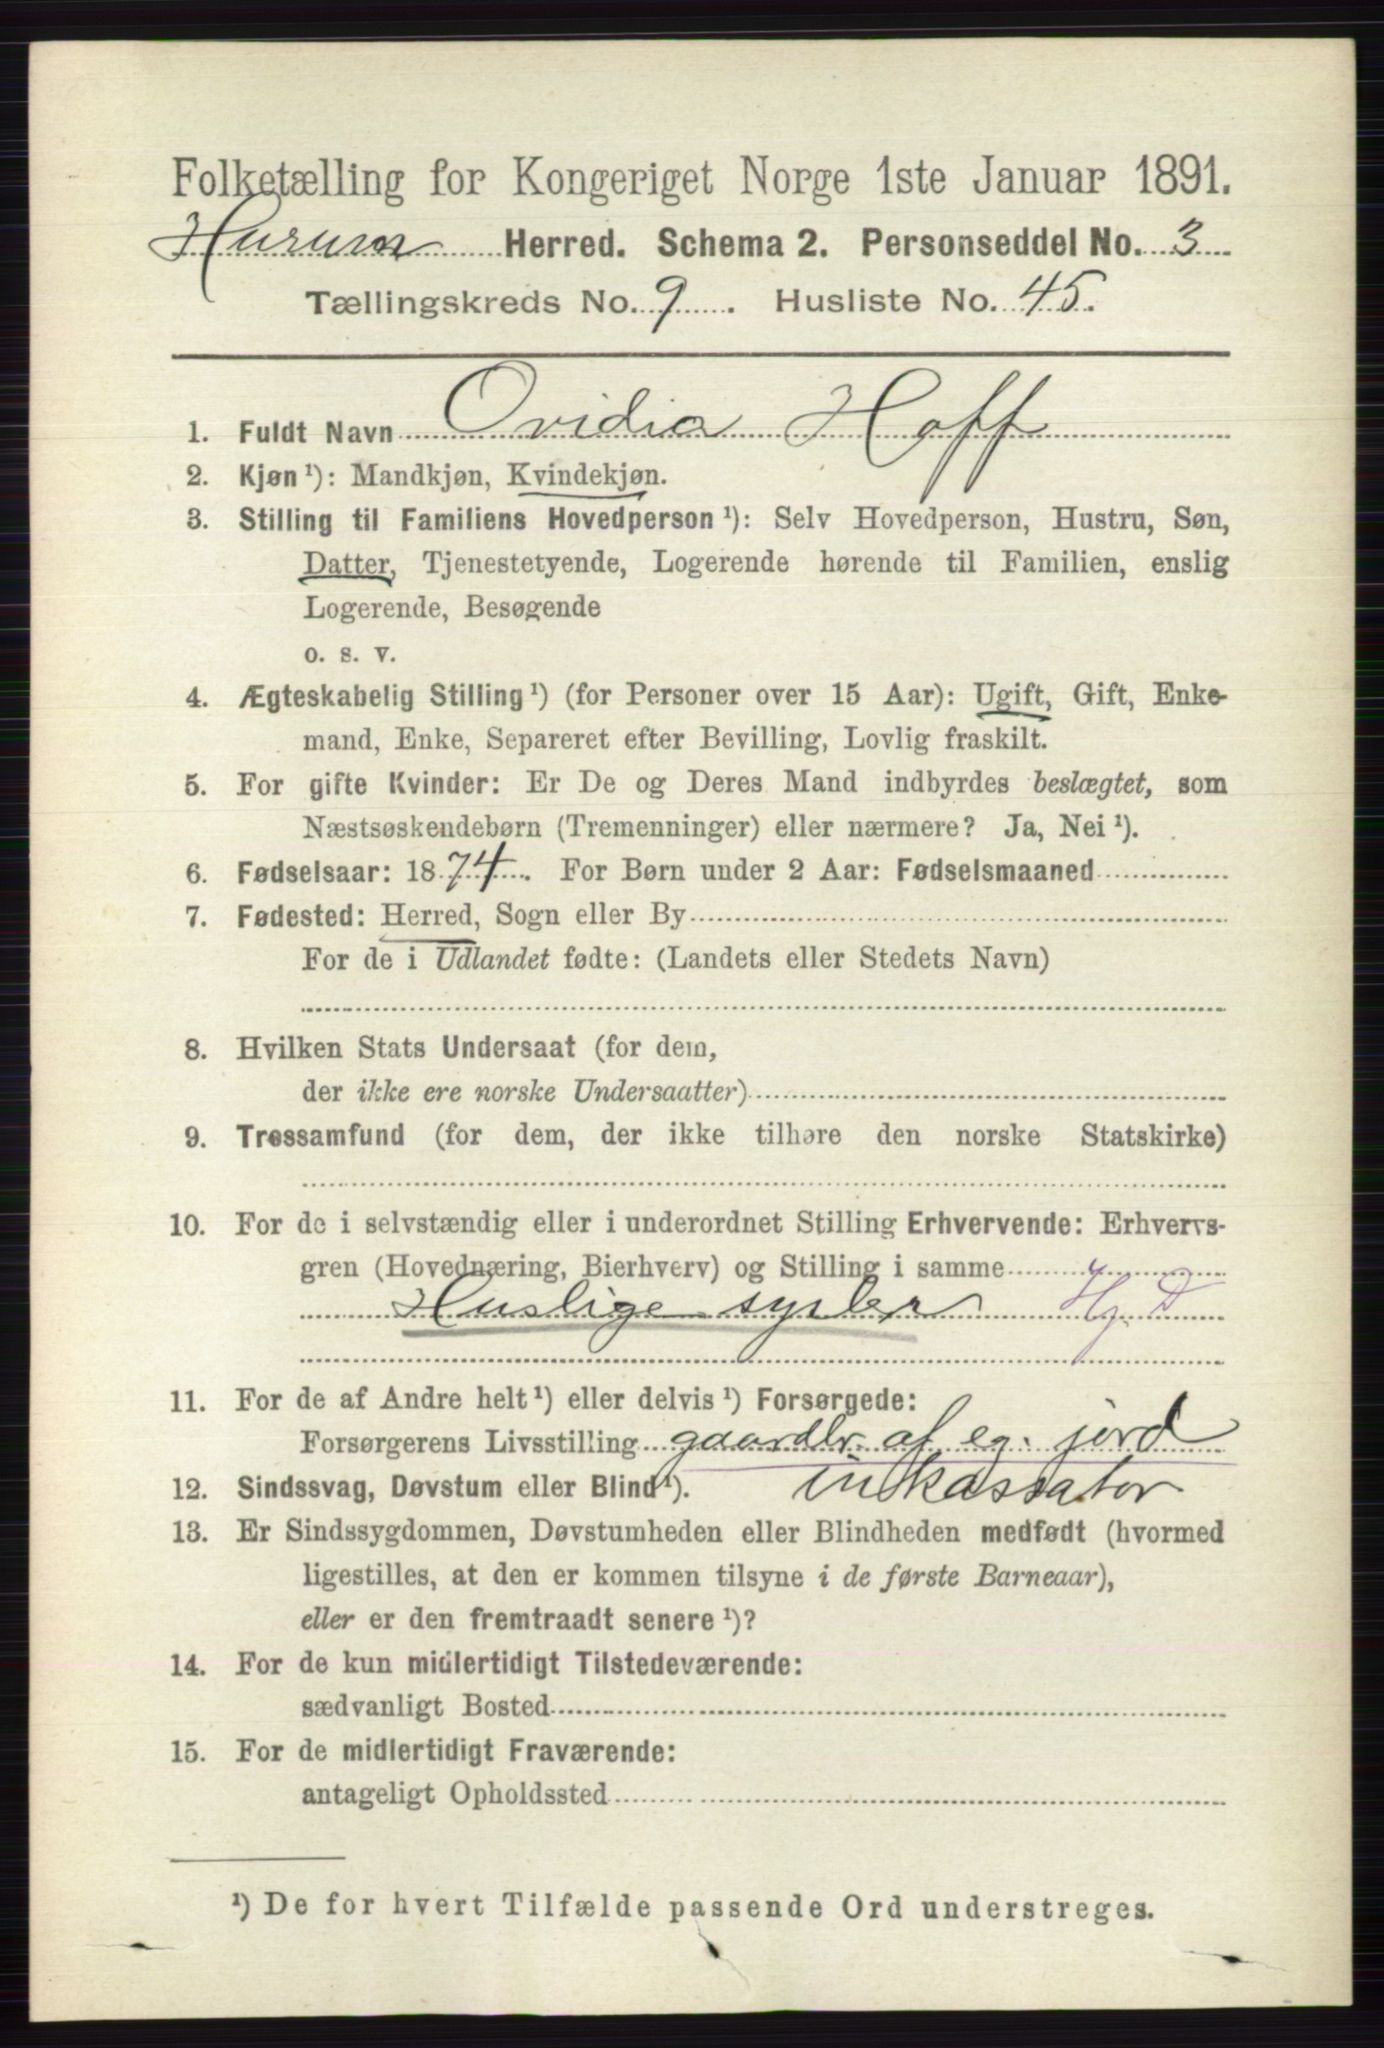 Folketælling for Kongeriget Norge 1ste Januar 1891.
Hurum Herred. Schema 2. Personseddel No. 3
Tællingskreds No. 9. Husliste No. 45.
1. Fuldt Navn Ovidia Hoff
2. Kjøn ¹): Mandkjøn, Kvindekjøn.
3. Stilling til Familiens Hovedperson ¹): Selv Hovedperson, Hustru, Søn,
Datter, Tjenestetyende, Logerende hørende til Familien, enslig
Logerende, Besøgende
o. s. v.
4. Ægteskabelig Stilling ¹) (for Personer over 15 Aar): Ugift, Gift, Enke-
mand, Enke, Separeret efter Bevilling, Lovlig fraskilt.
5. For gifte Kvinder: Er De og Deres Mand indbyrdes beslægtet, som
Næstsøskendebørn (Tremenninger) eller nærmere? Ja, Nei ¹).
6. Fødselsaar: 1874. For Børn under 2 Aar: Fødselsmaaned
7. Fødested: Herred, Sogn eller By
For de i Udlandet fødte: (Landets eller Stedets Navn)
8. Hvilken Stats Undersaat (for dem,
der ikke ere norske Undersaatter)
9. Trossamfund (for dem, der ikke tilhøre den norske Statskirke)
10. For de i selvstændig eller i underordnet Stilling Erhvervende: Erhvervs-
gren (Hovednæring, Bierhverv) og Stilling i samme
Huslige sysler Hg. D
11. For de af Andre helt ¹) eller delvis ¹) Forsørgede:
Forsørgerens Livsstilling gaardbr. af eg. jord
12. Sindssvag, Døvstum eller Blind ¹). inkassator
13. Er Sindssygdommen, Døvstumheden eller Blindheden medfødt (hvormed
ligestilles, at den er kommen tilsyne i de første Barneaar),
eller er den fremtraadt senere ¹)?
14. For de kun midlertidigt Tilstedeværende:
sædvanligt Bosted
15. For de midlertidigt Fraværende:
antageligt Opholdssted
¹) De for hvert Tilfælde passende Ord understreges.